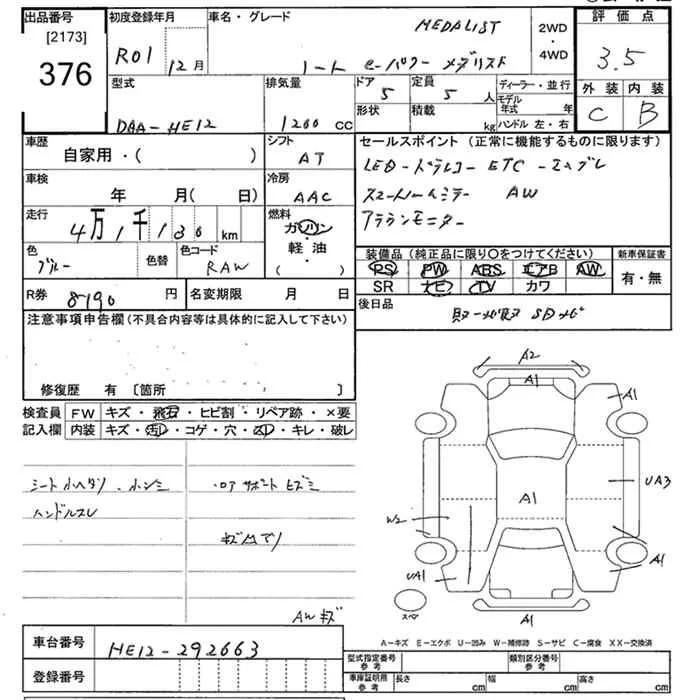 出品番号 初度登録年月 車名・グレード MEDALIST 2WD・4WD 評価点
[2173]
376
R01 12月 ノート e-パワー メダリスト 3.5
型式 排気量 ドア 5 定員 5 人 ディーラー・並行 外装 内装
モデル年式 年
形状 積載 kg ハンドル 左・右
DAA-HE12 1200 cc C B
車歴 シフト セールスポイント (正常に機能するものに限ります)
自家用・( ) AT
LED
ETC
車検 冷房
年 月( 日) AAC AW
走行 燃料
4万1千130 km ガソリン・軽油 ( )
アラウンドモニター
色 色替 色コード 装備品 (純正品に限り〇をつけてください) 新車保証書
ブルー RAW PS PW ABS エアB AW 有・無
SR ナビ TV カワ
R券 8190 円 名変期限 月 日 後日品
SDナビ
注意事項申告欄 (不具合内容等は具体的に記入して下さい)
修復歴 有 [箇所 ]
検査員記入欄 FW キズ・飛石・ヒビ割・リペア跡・×要
内装 キズ・汚レ・コゲ・穴・スレ・キレ・破レ
シート
ハンドルスレ
・ロアサポートヒズミ
AWキズ
A2
A1
A1
UA3
A1
W2
UA1
A1
A1
スペア
A-キズ E-エクボ U-凹み W-補修跡 S-サビ C-腐食 XX-交換済
車台番号 HE12-292663
型式指定番号 参考 類別区分番号 参考
登録番号
車庫証明用 参考 長さ cm 幅 cm 高さ cm